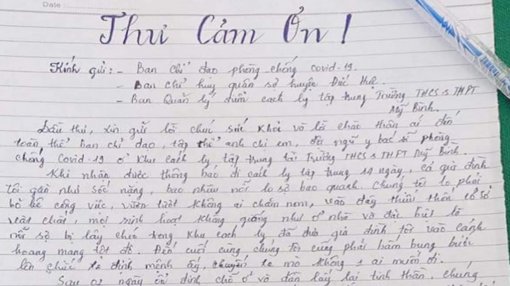 Date
Thư Cảm Ơn!
Kính gửi: - Ban chỉ đạo phòng chống covid-19.
- Ban chỉ huy quân sự huyện Đức Huệ.
- Ban Quản lý điểm cách ly tập trung Trường THCS & THPT
Mỹ Bình.
Đầu thư, xin gửi lời chúc sức khỏe và lời chào thân ái đến
toàn thể Ban chỉ đạo, tập thể anh chị em, đội ngũ y bác sĩ phòng
chống Covid-19 ở Khu cách ly tập trung tại Trường THCS & THPT Mỹ Bình.
Khi nhận được thông báo đi cách ly tập trung 14 ngày, cả gia đình
tôi gần như sốc nặng, bao nhiêu nỗi lo sợ bao quanh. Chúng tôi lo phải
bỏ bê công việc, vườn tược không ai chăm nom, vào đây thiếu thốn cơ sở
vật chất, mọi sinh hoạt không giống như ở nhà và đặc biệt là
nỗi sợ bị lây chéo trong khu cách ly đã đưa gia đình tôi vào cảnh
hoang mang tột độ. Đến cuối cùng chúng tôi cũng phải bấm bụng bước
lên chiếc xe định mệnh ấy, chuyến xe mà không ai muốn đi.
Sau ngày ổn định chỗ ở và dần lấy lại tinh thần, chúng